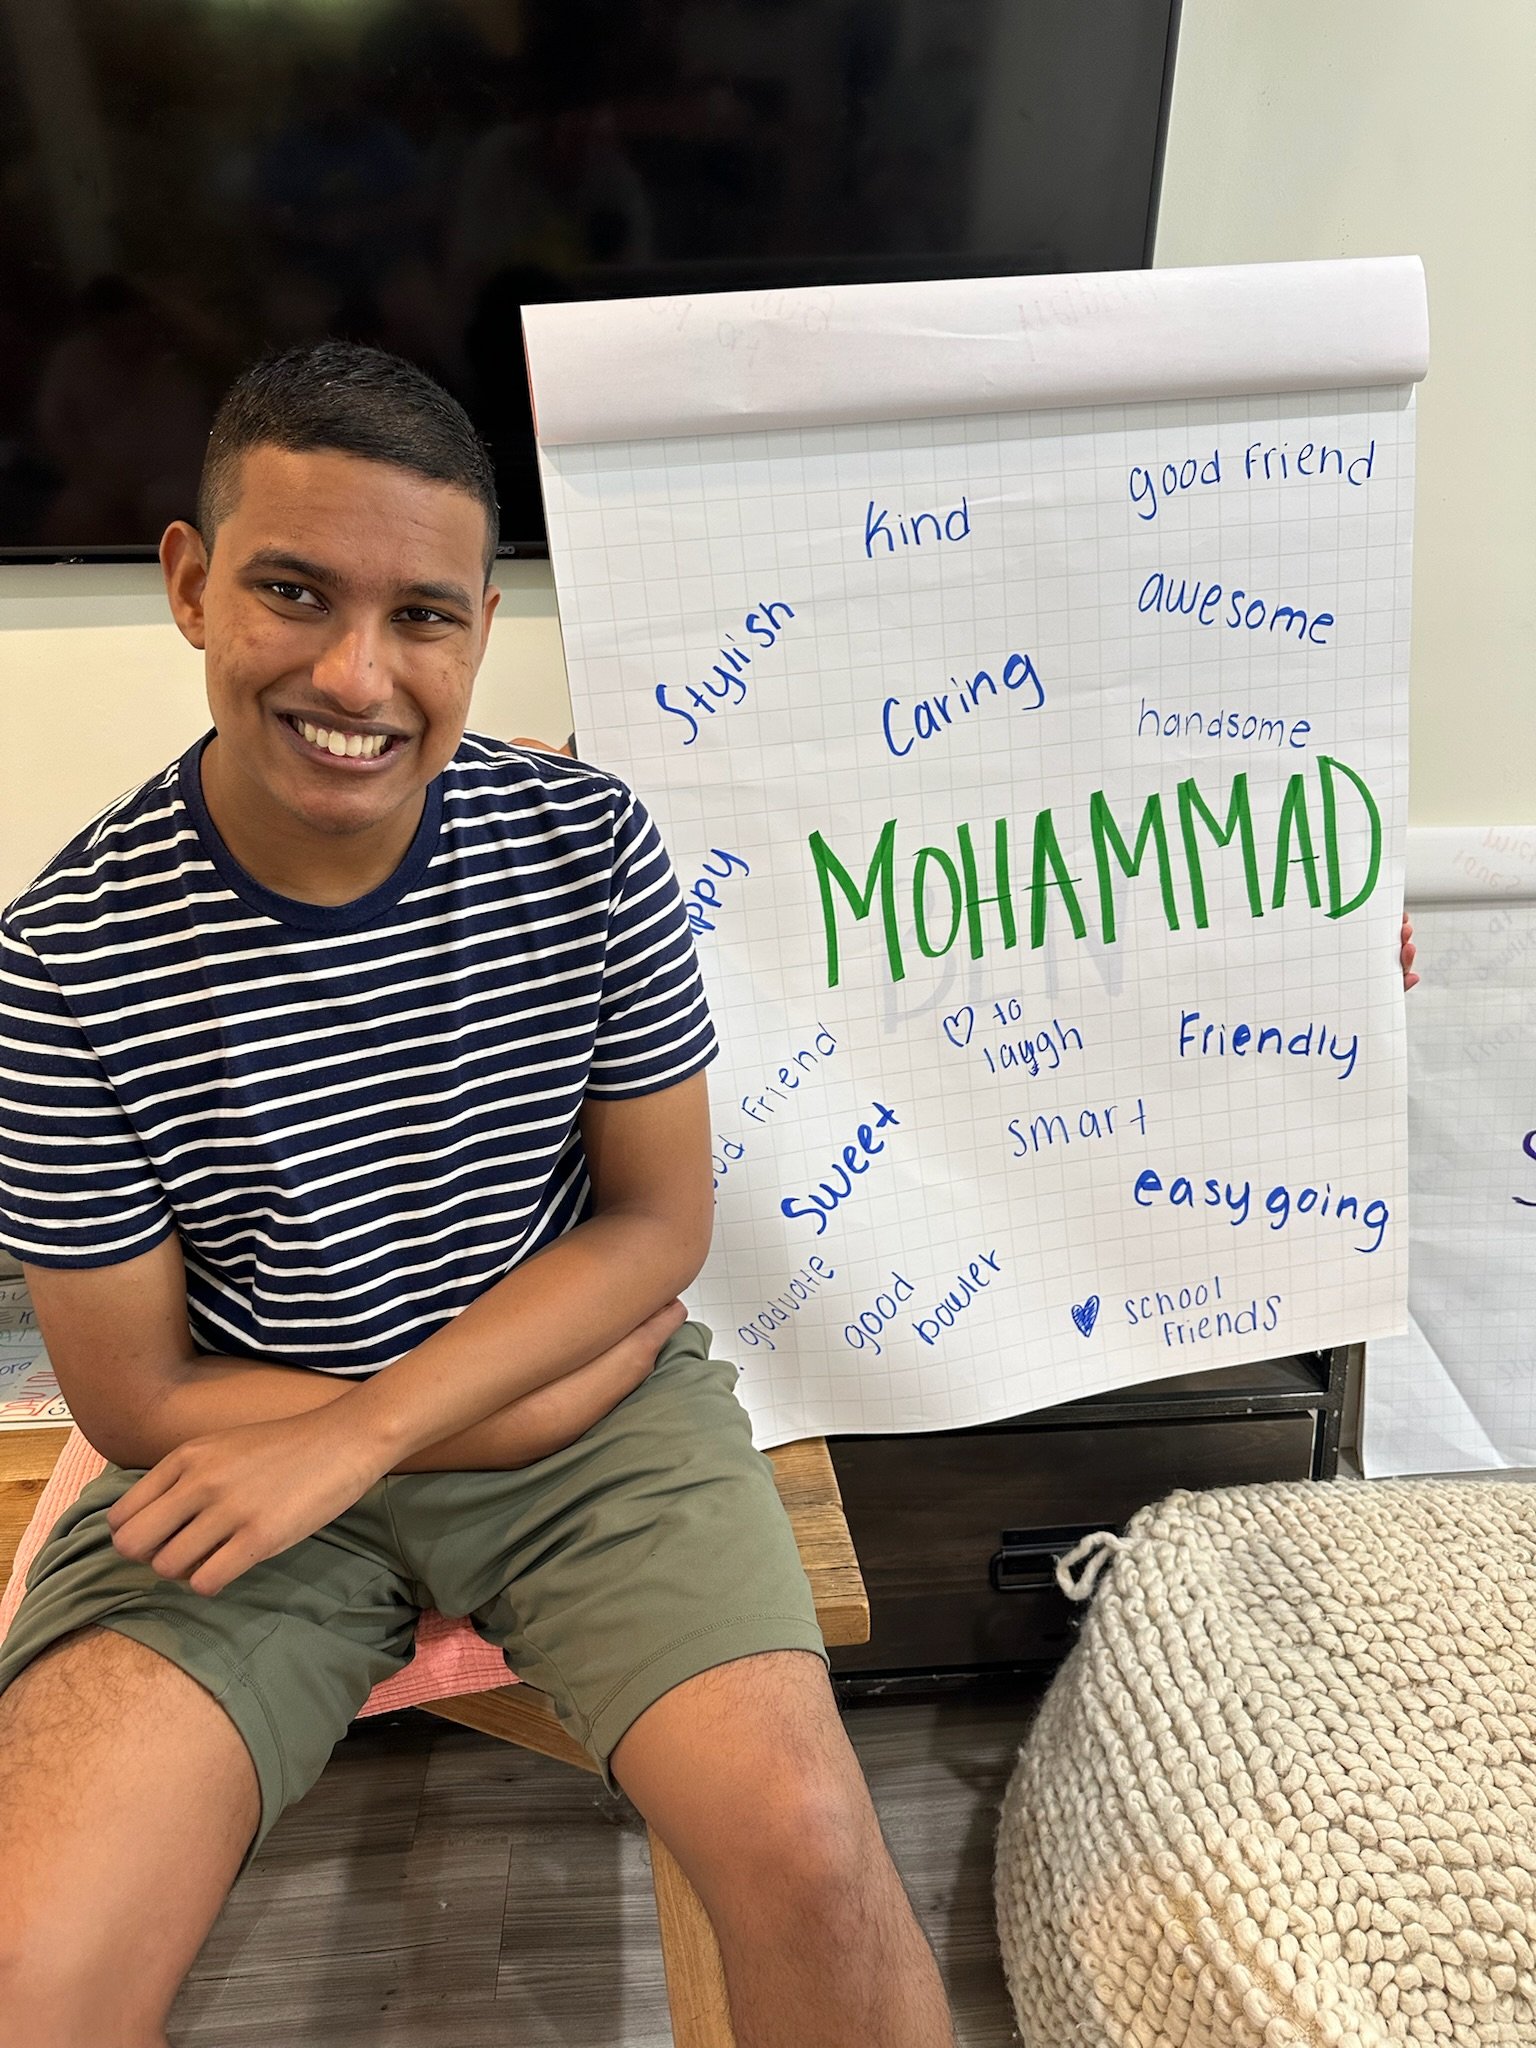 good friend
Kind
awesome
Stylish
Caring
handsome
MOHAMMAD
ppy
BEN
♡ to
laugh
Friendly
Friend
smart
Sweet
easy going
graduate
good
bowler
♥ school
Friends